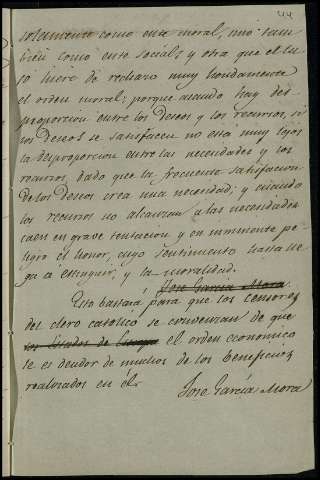 44
solamente como ente moral, sino tam-
bien como ente social; y otra que el lu-
jo hiere de rechazo muy hondamente
el orden moral; porque cuando hay des-
proporcion entre los deseos y los recursos, si
los deseos se satisfacen no está muy lejos
la desproporcion entre las necesidades y los
recursos, dado que la frecuente satisfaccion
de los deseos crea una necesidad; y cuando
los recursos no alcanzan a las necesidades
caen en grave tentacion y en inminente pe-
ligro el honor, cuyo sentimiento hasta lle-
ga a estinguir, y la moralidad.
José García Mora
Esto bastará para que los censores
del clero católico se convenzan de que
los Estados de Europa el orden economico
le es deudor de muchos de los beneficios
realizados en él.
José García Mora